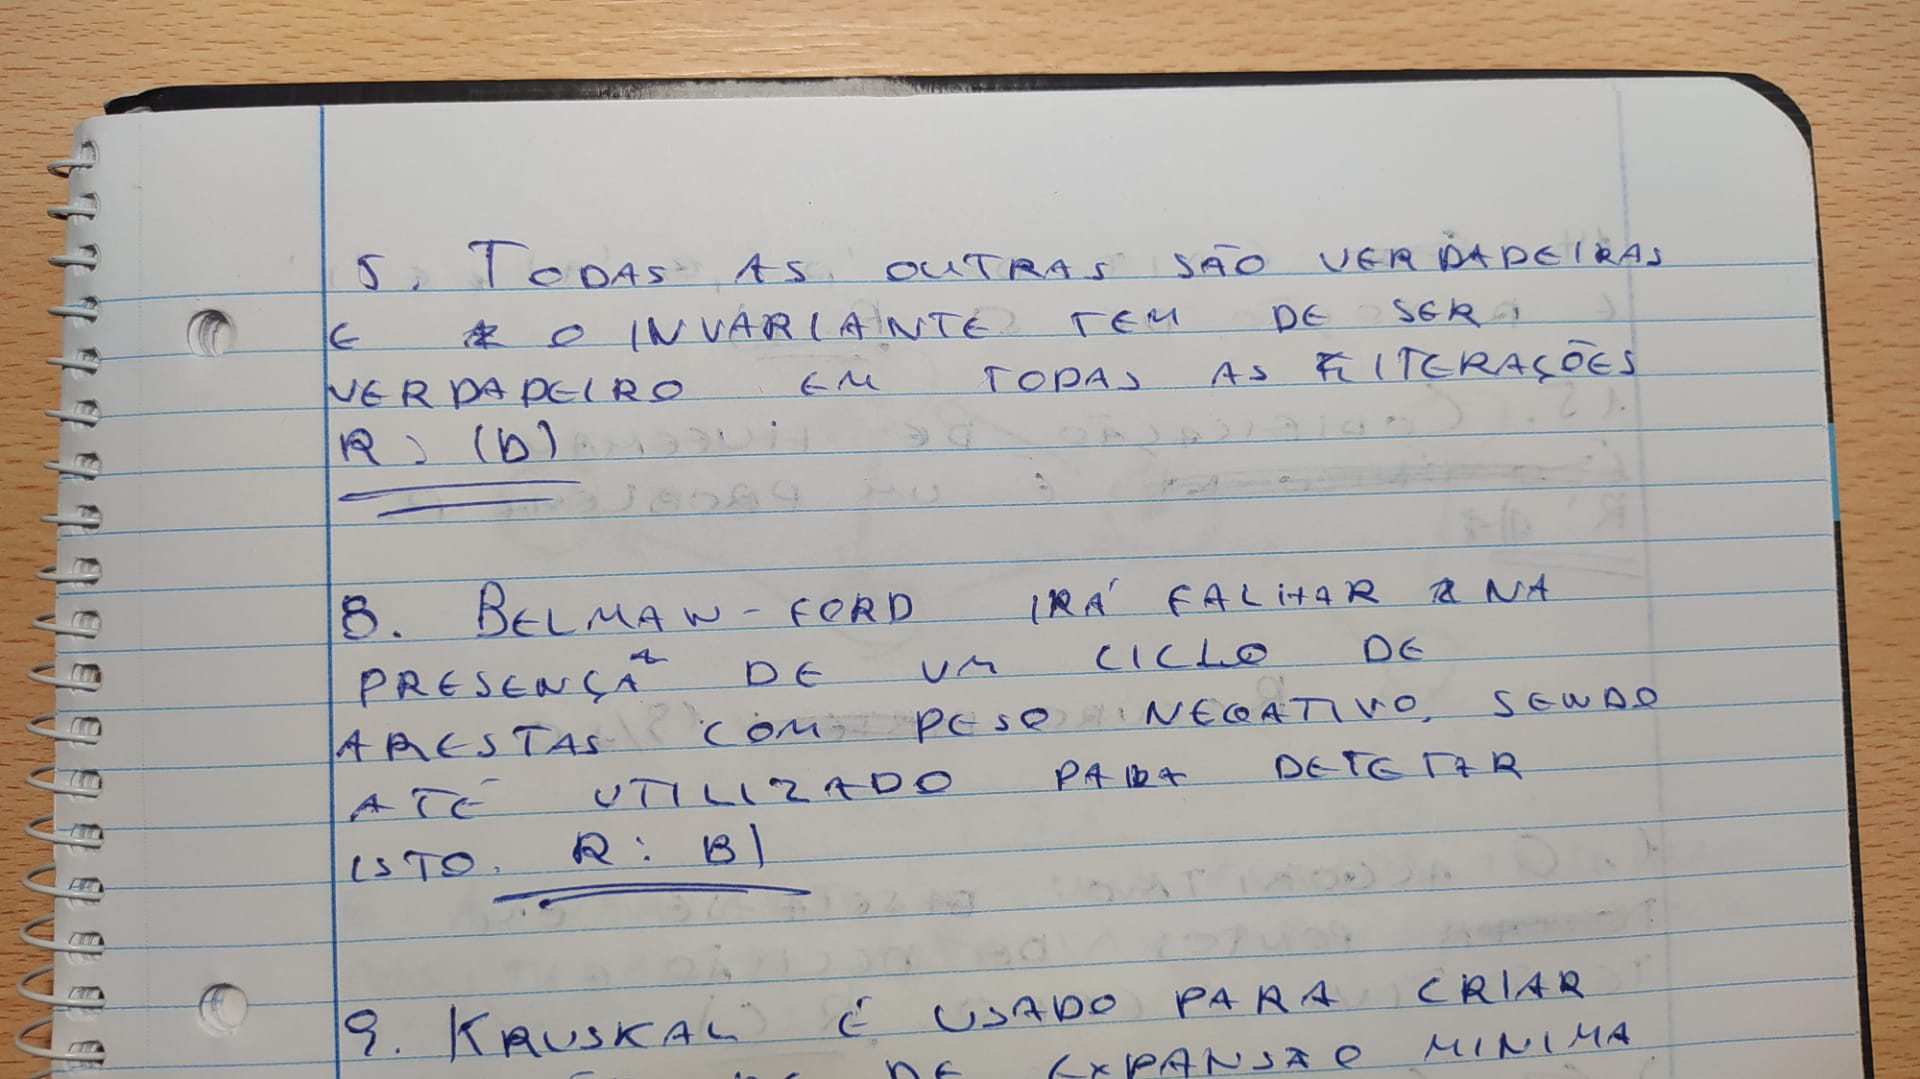 5. TODAS AS OUTRAS SÃO VERDADEIRAS
E O INVARIANTE TEM DE SER
VERDADEIRO EM TODAS AS ITERAÇÕES
R: (D)
8. BELMAN-FORD IRÁ FALHAR NA
PRESENÇA DE UM CICLO DE
ARESTAS COM PESO NEGATIVO, SENDO
ATÉ UTILIZADO PARA DETETAR
ISTO. R: B)
9. KRUSKAL É USADO PARA CRIAR
DE EXPANSÃO MINIMA